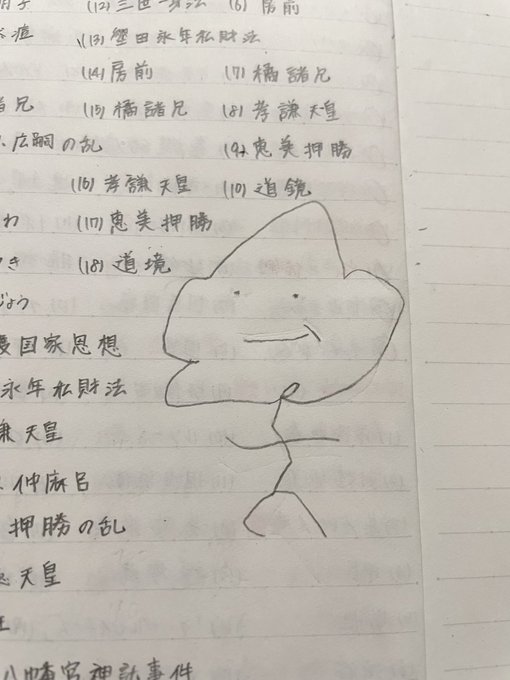 (12) 三世一身法 (6) 房前
(13) 墾田永年私財法
(14) 房前 (7) 橘諸兄
諸兄 (15) 橘諸兄 (8) 孝謙天皇
広嗣の乱 (9) 恵美押勝
(16) 孝謙天皇 (10) 道鏡
わ (17) 恵美押勝
き (18) 道境
じょう
護国家思想
永年私財法
謙天皇
仲麻呂
押勝の乱
天皇
八幡宮神託事件